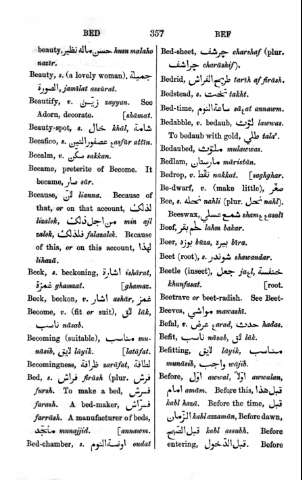 BED 357 BEF
beauty, نظير husn malaho
nazir.
Beauty, s. (a lovely woman), جميلة
الصورة jamílat assúrat
Beautify, v. زيّن zayyan. See
Adorn, decorate. [shámat.
Beauty-spot, s. خال khál, شامة
Becafico, s. asfúr attín.
Becalm, v. سكن sakkan.
Became, preterite of Become. It
became, صار sár.
Because, لأن liann. Because of
that, or on that account, لذلك
lizalek, من اجل ذلك min ajl
zalek, فلذلك falazalek. Because
of this, or on this account, لهذا
lihazá.
Beck, s. beckoning, اشارة ishárat,
غمزة ghamzat. [ghamaz.
Beck, beckon, v. اشار ashár, غمز
Become, v. (fit or suit), لاق lák,
ناسب násab.
Becoming (suitable), مناسب mu-
násib, لايق láyik. [latáfat.
Becomingness, ظرافة zaráfat, لطافة
Bed, s. فراش firásh (plur. فرش
fursh. To make a bed, فرش
farash. A bed-maker, فرّاش
farrásh. A manufacturer of beds,
منجّد munajjid. [annawm.
Bed-chamber, s. اوضة النوم oudat
Bed-sheet, چرشف charshaf (plur.
چراشف charáshif).
Bedrid, طريح الفراش tarth af firásh.
Bedstead, s. تخت takht.
Bed-time, ساعة النوم sáat annawm.
Bedabble, v. bedaub, لوّث lawwas.
To bedaub with gold, طلى tala'.
Bedaubed, ملوّث mulawwas.
Bedlam, مارستان máristán.
Bedrop, v. نقط nakkat. [soghghar.
Be-dwarf, v. (make little), صغّر
Bee, s. نحلة nahli (plur. نحل nahl).
Beeswax, شمع عسلي sham e asali
Beef, لحم بقر lahm bakar.
Beer, بوزه búza, بيرة bíra.
Beet (root), s. شوندر shawandar.
Beetle (insect), جعل jeal, خنفسة
khunfusat. [root.
Beetrave or beet-radish. See Beet-
Beeves, مواشي mawashi.
Befal, v. عرض arad, حدث hadas.
Befit, ناسب násab, لاق lák.
Befitting, لايق láyik, مناسب
munásib, واجب wájib.
Before, أول awwal, أولاً awwalan,
امام amám. Before this, قبل هذا
kabl hazá. Before the time, قبل
الزمان kabl azzamán, Before dawn,
قبل الصبح kabl assubh. Before
entering, قبل الدخول. Before